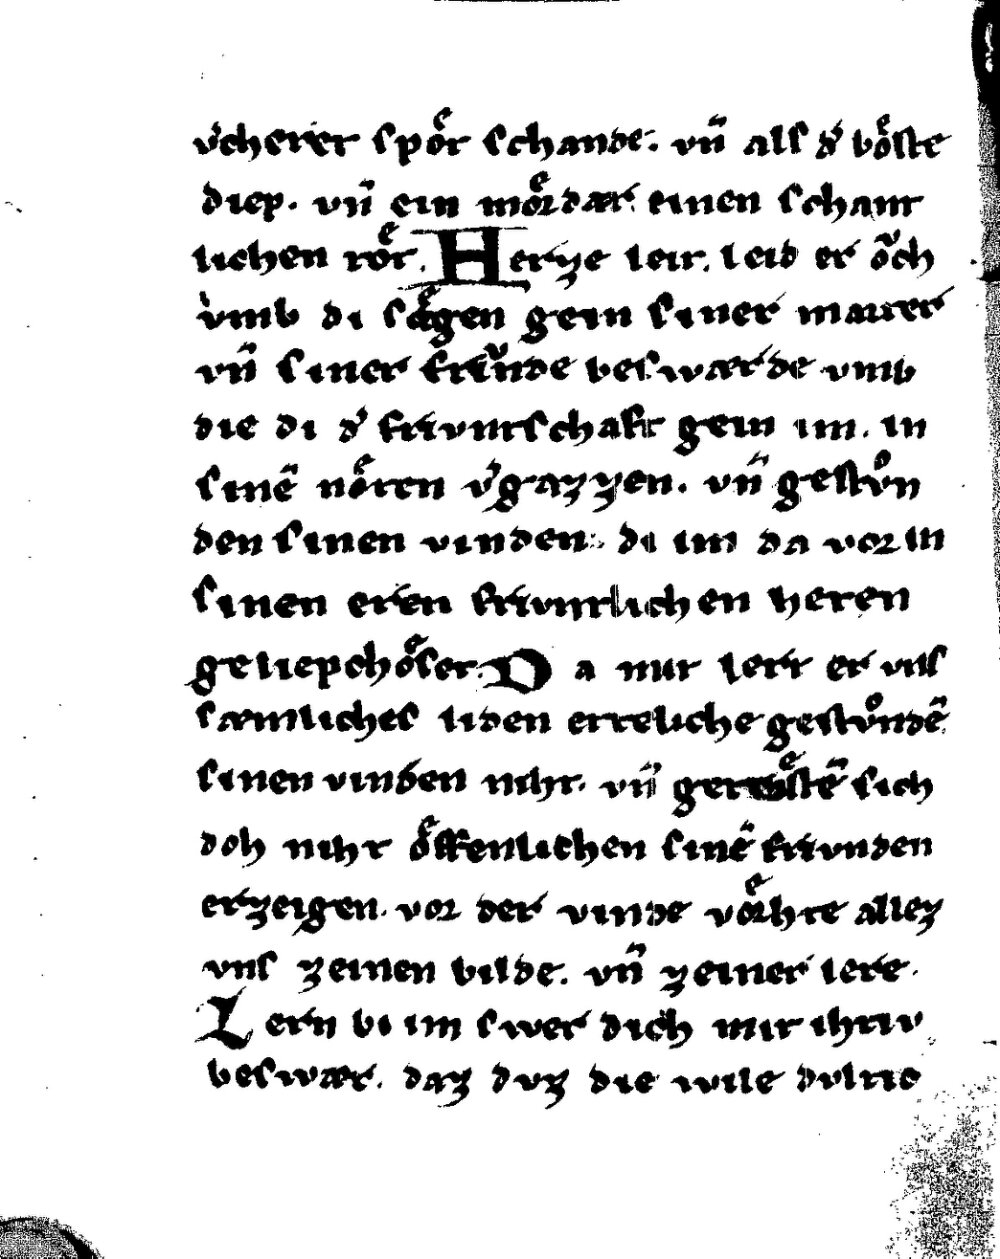 v̓cherer spoͤt schande. vn̄ als d̓ boͤste
diep. vn̄ ein moͤrdær. einen schant
lichen toͤt. Herze leit. leid er oͮch
vmb di saͤgen gein siner marter
vn̄ siner freuͮnde beswærde vmb
die di d̓ frivntschaft gein im. in
sinē noͤten v̓gazzen. vn̄ gestvͦn
den sinen vinden. di im da vor in
sinen eren frivntlichen heten
geliepchoͤset. Da mit lert er vns
sæmliches liden etteliche gestvͦndē
sinen vinden niht. vn̄ getoͤstē sich
doh niht oͤffenlichen sinē frivnden
erzeigen. vor der vinde voͤrhte allez
vns zeinen bilde. vn̄ zeiner lere.
Lern bi im swer dich mit ihtiv
beswær. daz dvz die wile dvltic